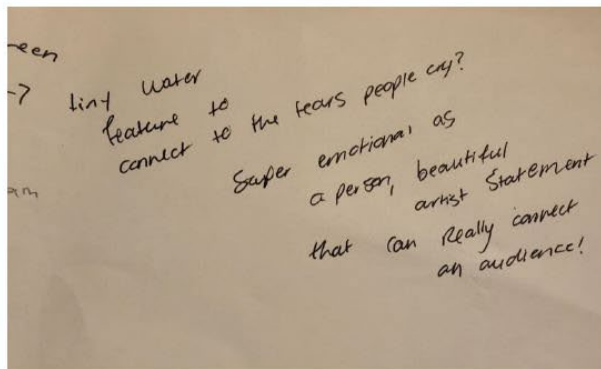 een
-7 tiny water
feature to
connect to the tears people cry?
Super emotional as
a person, beautiful
artist statement
that can Really connect
an audience!